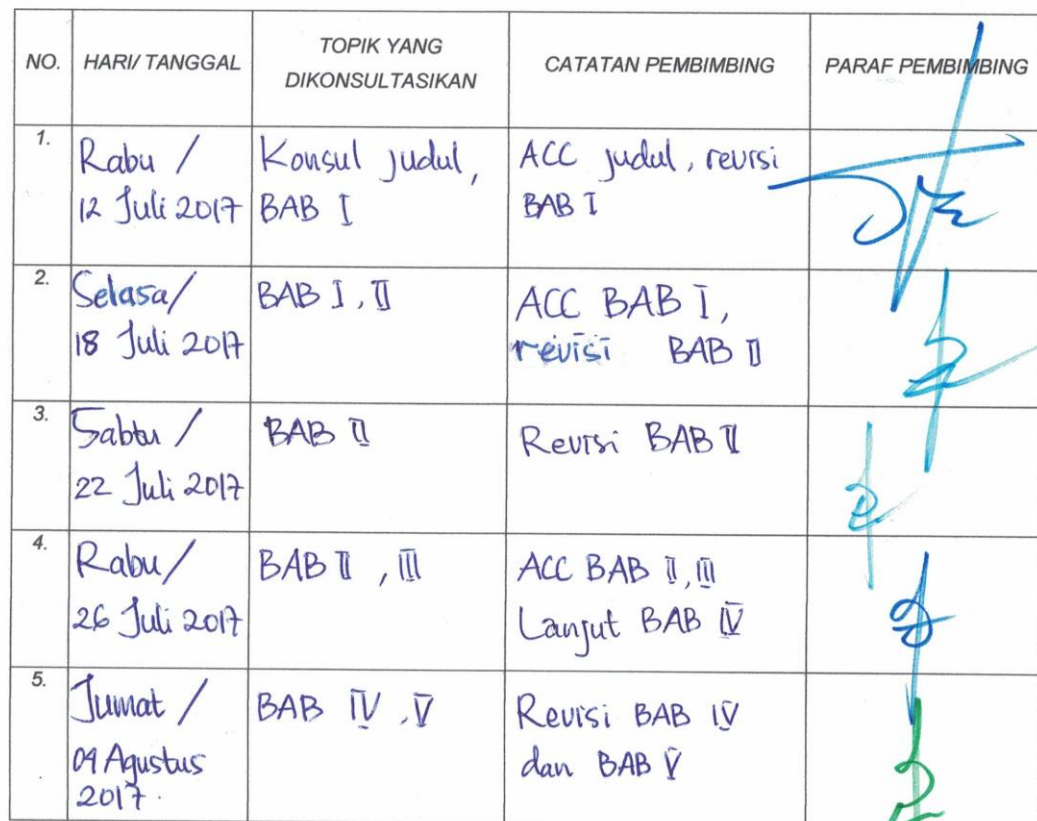 NO.
HARI/ TANGGAL
TOPIK YANG
DIKONSULTASIKAN
CATATAN PEMBIMBING
PARAF PEMBIMBING
1.
Rabu /
12 Juli 2017
Konsul judul,
BAB I
ACC judul, revisi
BAB I
2.
Selasa/
18 Juli 2017
BAB I, II
ACC BAB I,
revisi BAB II
3.
Sabtu /
22 Juli 2017
BAB II
Revisi BAB II
4.
Rabu/
26 Juli 2017
BAB II, III
ACC BAB II, III
Lanjut BAB IV
5.
Jumat /
04 Agustus
2017.
BAB IV, V
Revisi BAB IV
dan BAB V